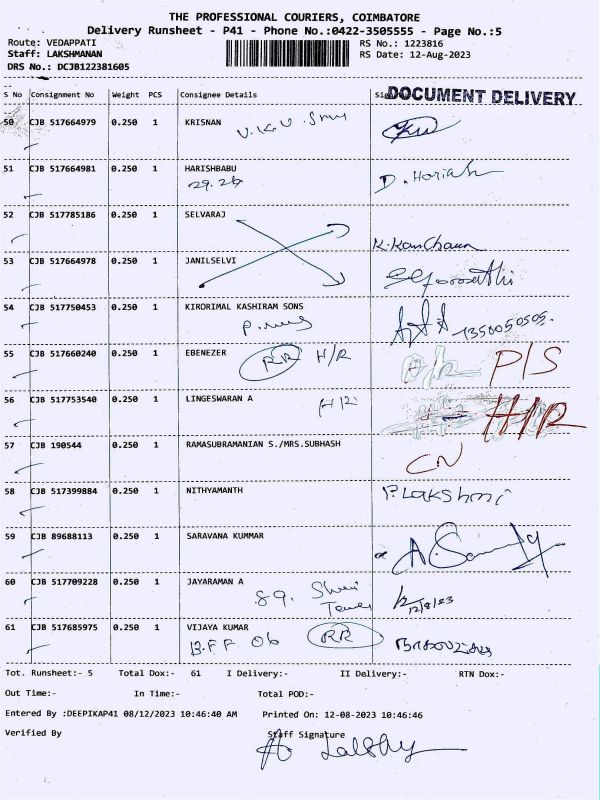 THE PROFESSIONAL COURIERS, COIMBATORE
Delivery Runsheet - P41 - Phone No.:0422-3505555 - Page No.:5
Route: VEDAPPATI RS No.: 1223816
Staff: LAKSHMANAN RS Date: 12-Aug-2023
DRS No.: DCJB122381605
S No Consignment No Weight PCS Consignee Details DOCUMENT DELIVERY
50 CJB 517664979 0.250 1 KRISNAN
51 CJB 517664981 0.250 1 HARISHBABU
29.26 D. Harish
52 CJB 517785186 0.250 1 SELVARAJ
53 CJB 517664978 0.250 1 JANILSELVI
54 CJB 517750453 0.250 1 KIRORIMAL KASHIRAM SONS
55 CJB 517660240 0.250 1 EBENEZER
RR H/R P/S
56 CJB 517753540 0.250 1 LINGESWARAN A
H/R H/R
57 CJB 190544 0.250 1 RAMASUBRAMANIAN S./MRS.SUBHASH
CN
58 CJB 517399884 0.250 1 NITHYAMANTH P. Lakshmi
59 CJB 89688113 0.250 1 SARAVANA KUMMAR
60 CJB 517709228 0.250 1 JAYARAMAN A
89. 12/8/23
61 CJB 517685975 0.250 1 VIJAYA KUMAR
B.FF 06 RR
Tot. Runsheet:- 5 Total Dox:- 61 I Delivery:- II Delivery:- RTN Dox:-
Out Time:- In Time:- Total POD:-
Entered By :DEEPIKAP41 08/12/2023 10:46:40 AM Printed On: 12-08-2023 10:46:46
Verified By Staff Signature